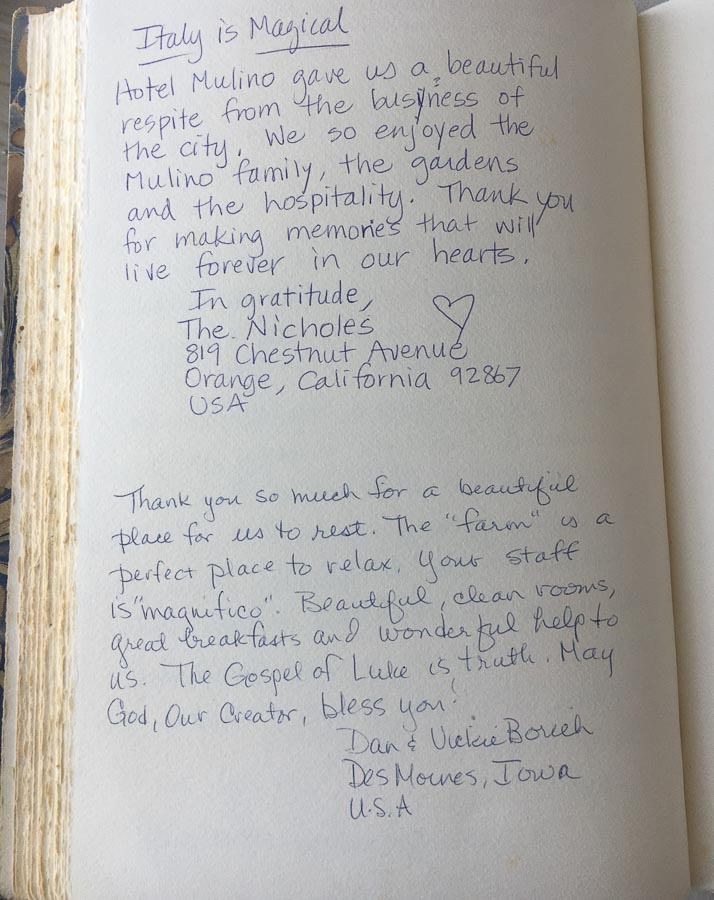 Italy is Magical
Hotel Mulino gave us a beautiful
respite from the busyness of
the city. We so enjoyed the
Mulino family, the gardens
and the hospitality. Thank you
for making memories that will
live forever in our hearts.
In gratitude,
The Nicholes
819 Chestnut Avenue
Orange, California 92867
USA
Thank you so much for a beautiful
place for us to rest. The "farm" is a
perfect place to relax. Your staff
is "magnifico". Beautiful, clean rooms,
great breakfasts and wonderful help to
us. The Gospel of Luke is truth. May
God, Our Creator, bless you!
Dan & Vickie
Des Moines, Iowa
U.S.A